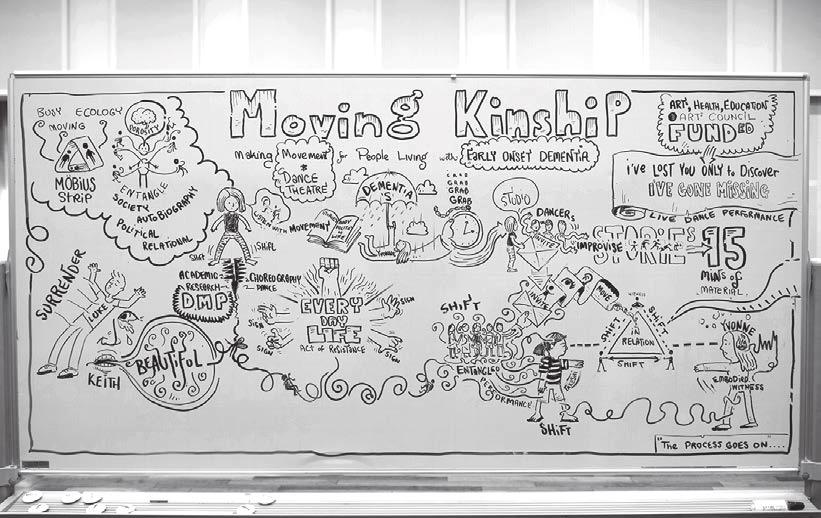 Moving Kinship
Making Movement
& Dance
Theatre
for People Living with Early Onset Dementia
Art, Health, Education
Art Council
Funded
i've lost you only to discover
I've gone missing
Live Dance Performance
Body Ecology
Moving
Möbius
Strip
Porosity
Entangle
Society
Autobiography
Political
Relational
Shift
Shift
with Movement
Dementia
is
Grab
Grab
Grab
Studio
Dancers
Invite
Improvise
Stories
15
mins of
material
Academic
Research
DMP
Choreography
Dance
Surrender
Luke
Keith
Beautiful
Every
Day
Life
Act of Resistance
Sign
Sign
Sign
Sign
Shift
Entangled
Performance
Shift
Move
Witness
Shift
Shift
in
Relation
Shift
Yvonne
Embodied
Witness
"The process goes on....